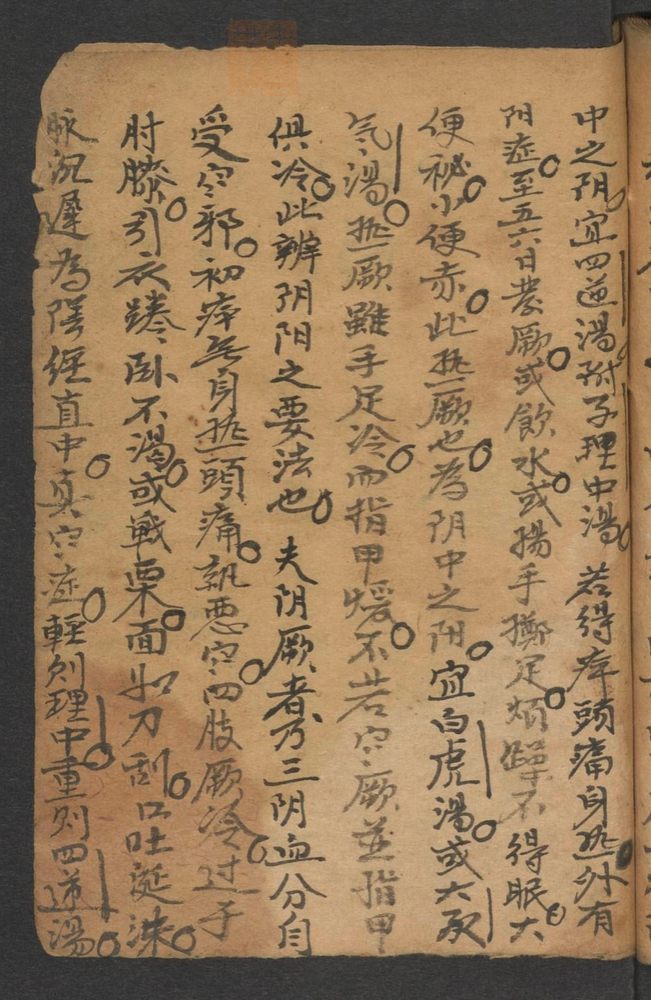 中之阴宜四逆湯附子理中湯 若得疾頭痛身热外有
阳症至五六日發厥或飲水或揚手擲足煩躁不得眠大
便秘小便赤此热厥也為阴中之阳宜白虎湯或大承
氣湯热厥雖手足冷而指甲煖不若寒厥並指甲
俱冷此辨阴阳之要法也 夫阴厥者乃三阴血分自
受寒邪初病無身热頭痛就悪寒四肢厥冷过于
肘膝引衣踡卧不渴或戰栗面如刀刮口吐涎沫
脉沉遲為陰經直中真寒症輕則理中重則四逆湯